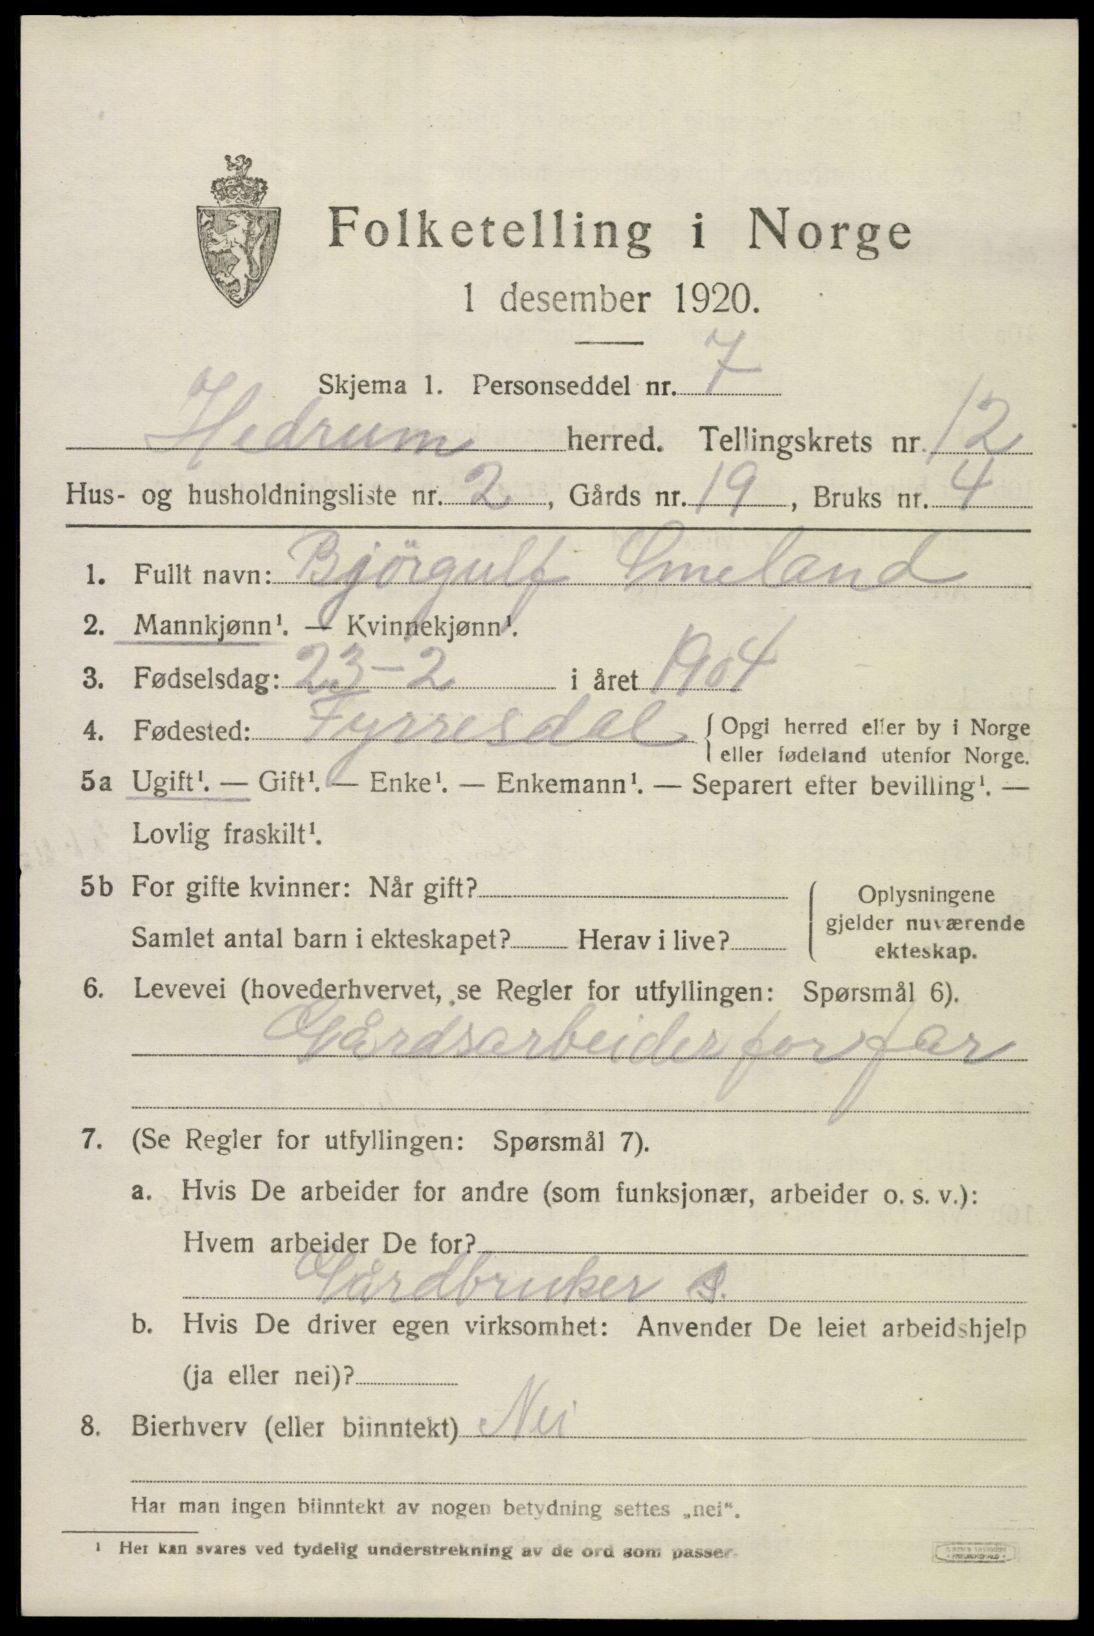 Folketelling i Norge
1 desember 1920.
Skjema 1. Personseddel nr. 7
Hedrum herred. Tellingskrets nr. 12
Hus- og husholdningsliste nr. 2, Gårds nr. 19, Bruks nr. 4
1. Fullt navn: Bjørgulf Smeland
2. Mannkjønn¹. — Kvinnekjønn¹.
3. Fødselsdag: 23-2 i året 1904
4. Fødested: Fyrresdal { Opgi herred eller by i Norge
eller fødeland utenfor Norge.
5a Ugift¹. — Gift¹. — Enke¹. — Enkemann¹. — Separert efter bevilling¹. —
Lovlig fraskilt¹.
5b For gifte kvinner: Når gift? { Oplysningene
gjelder nuværende
ekteskap.
Samlet antal barn i ekteskapet? Herav i live?
6. Levevei (hovederhvervet, se Regler for utfyllingen: Spørsmål 6).
Gårdsarbeider for far
7. (Se Regler for utfyllingen: Spørsmål 7).
a. Hvis De arbeider for andre (som funksjonær, arbeider o. s. v.):
Hvem arbeider De for?
Gårdbruker S.
b. Hvis De driver egen virksomhet: Anvender De leiet arbeidshjelp
(ja eller nei)?
8. Bierhverv (eller biinntekt) Nei
Har man ingen biinntekt av nogen betydning settes „nei“.
¹ Her kan svares ved tydelig understrekning av de ord som passer.